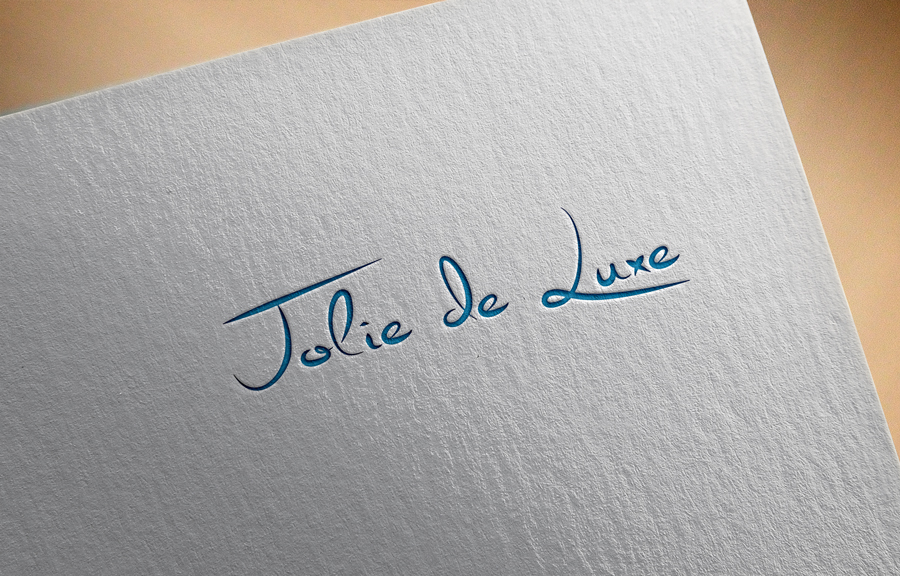 Jolie de Luxe